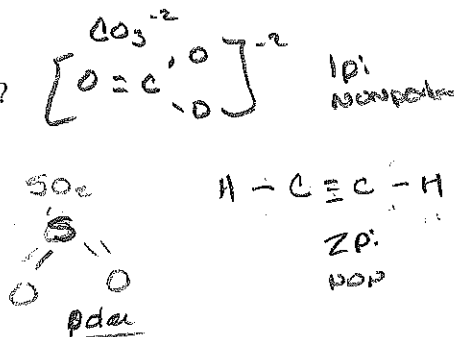 CO3 -2
? [O = C O O] -2
1pi
nonpolar
SO2
S
O O
polar
H - C ≡ C - H
2pi
non